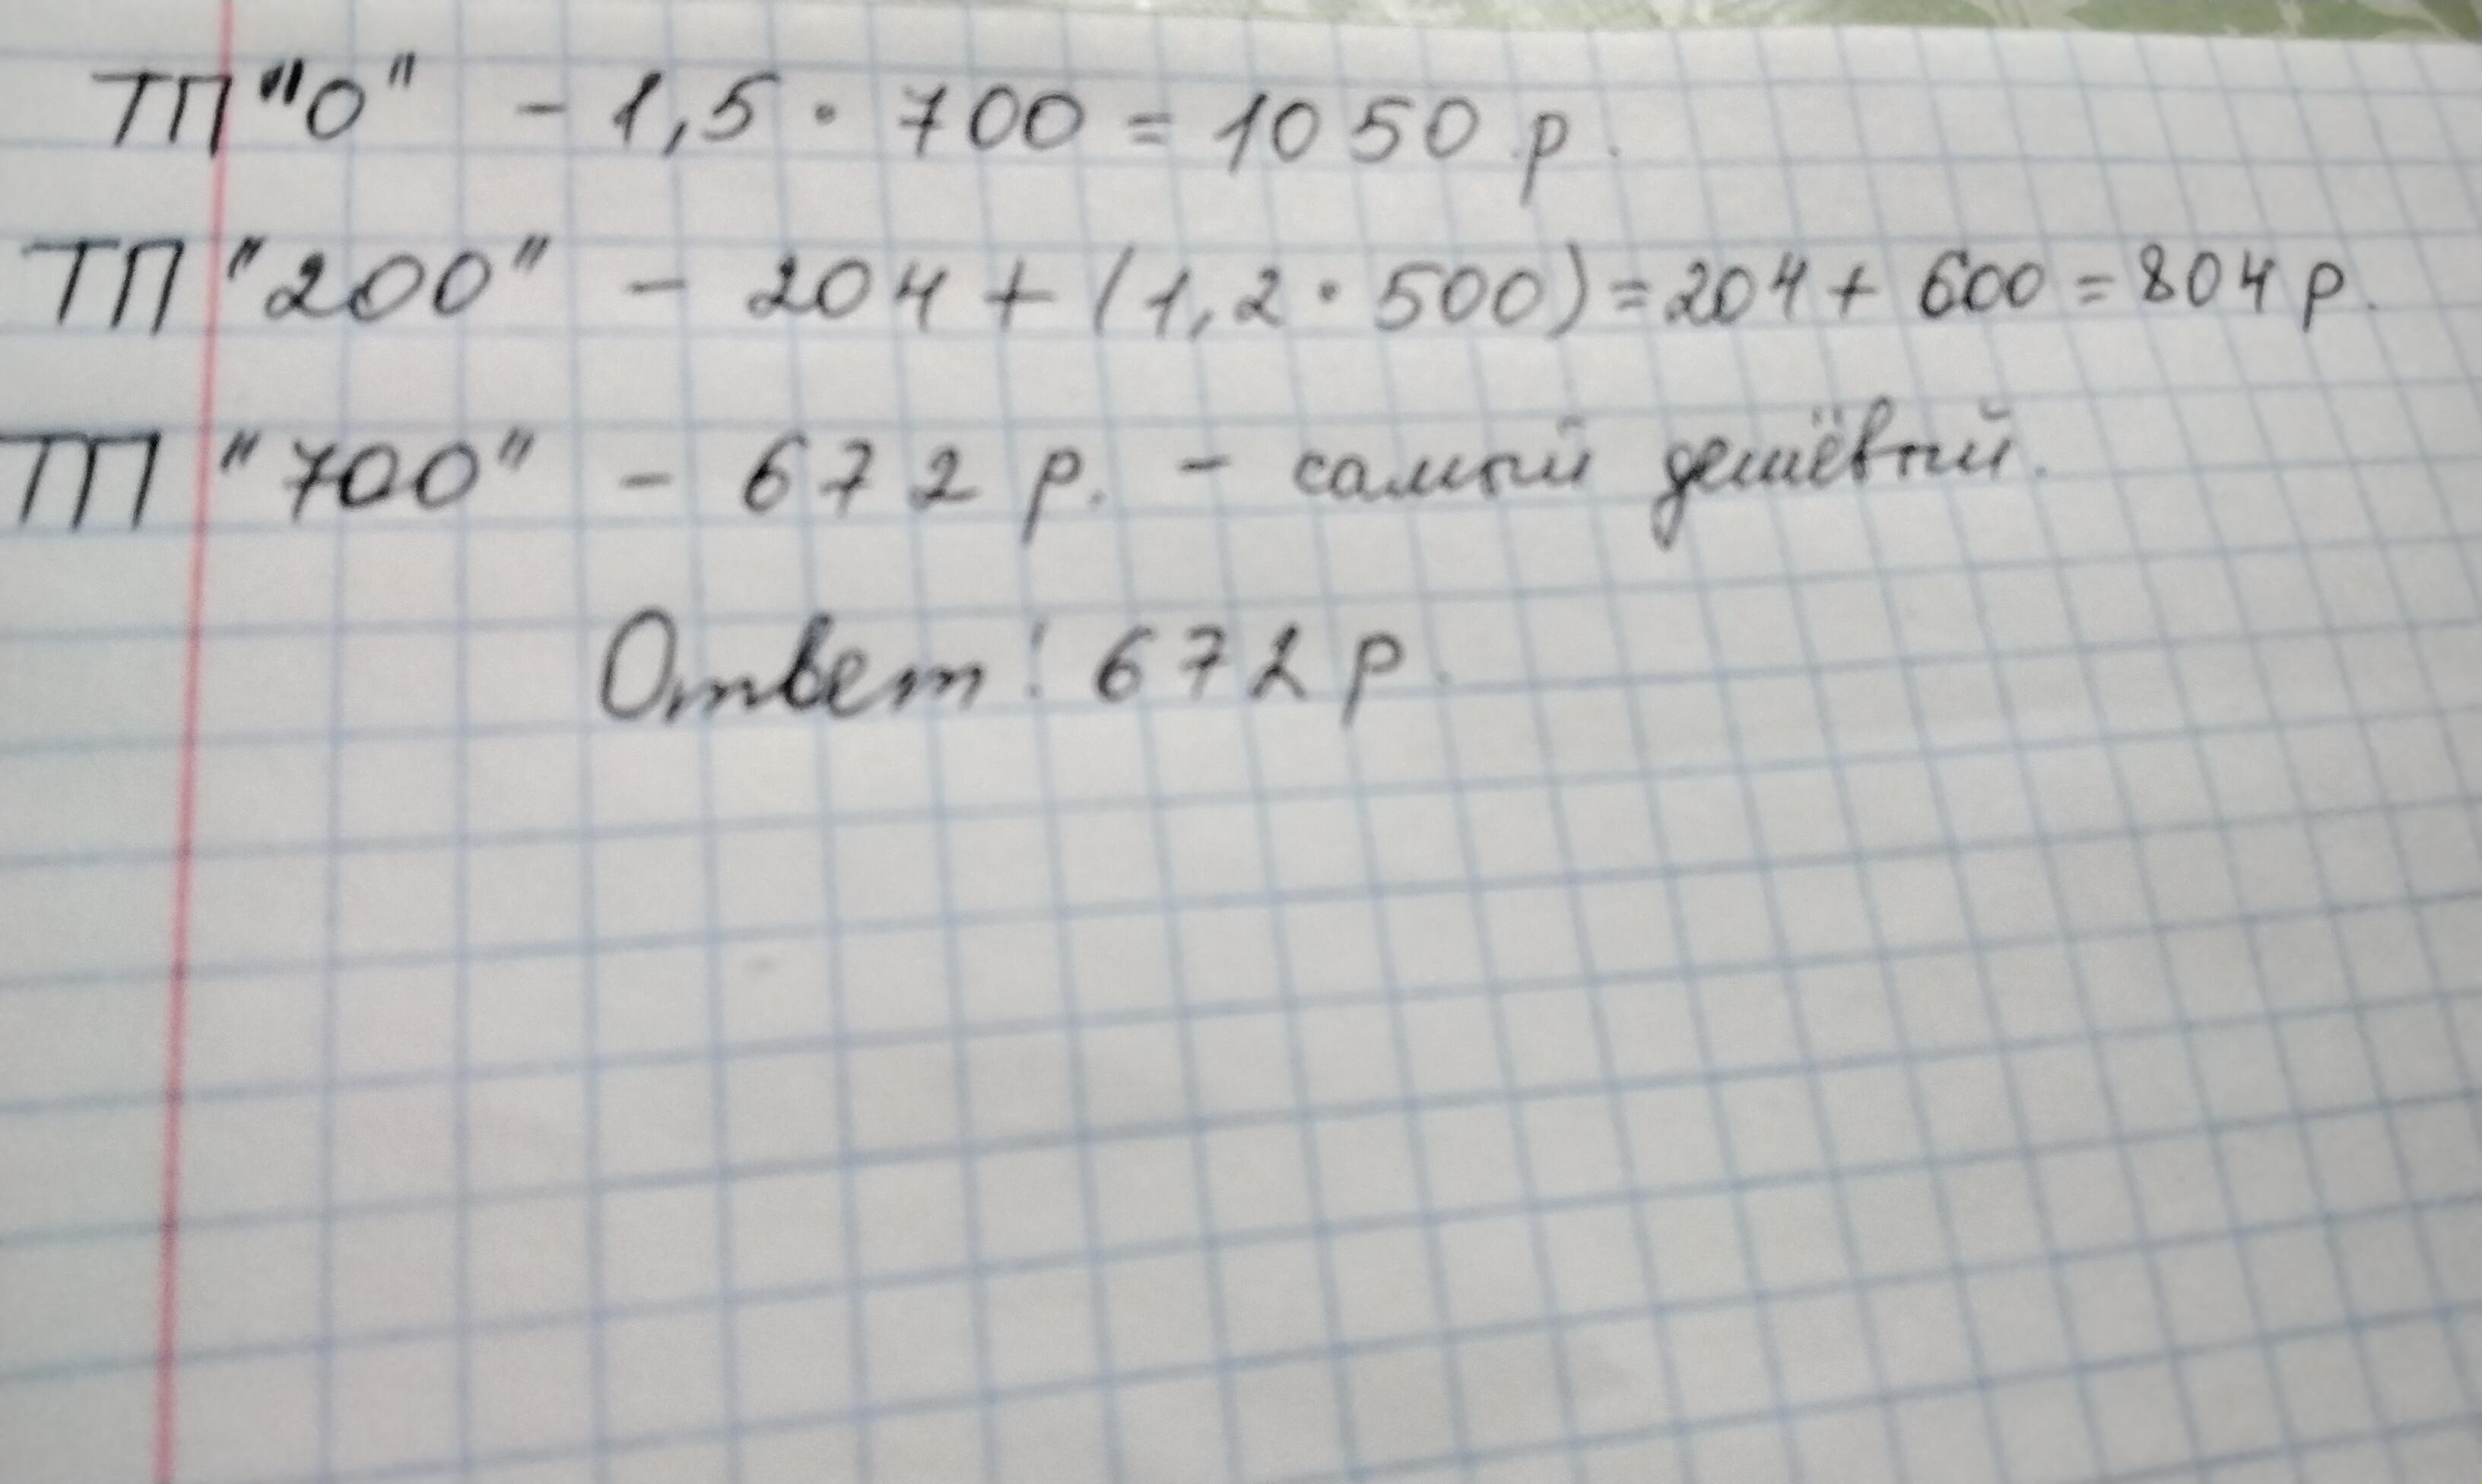 ТП "0" - 1,5 · 700 = 1050 р.
ТП "200" - 204 + (1,2 · 500) = 204 + 600 = 804 р.
ТП "700" - 672 р. - самый дешёвый.
Ответ: 672 р.